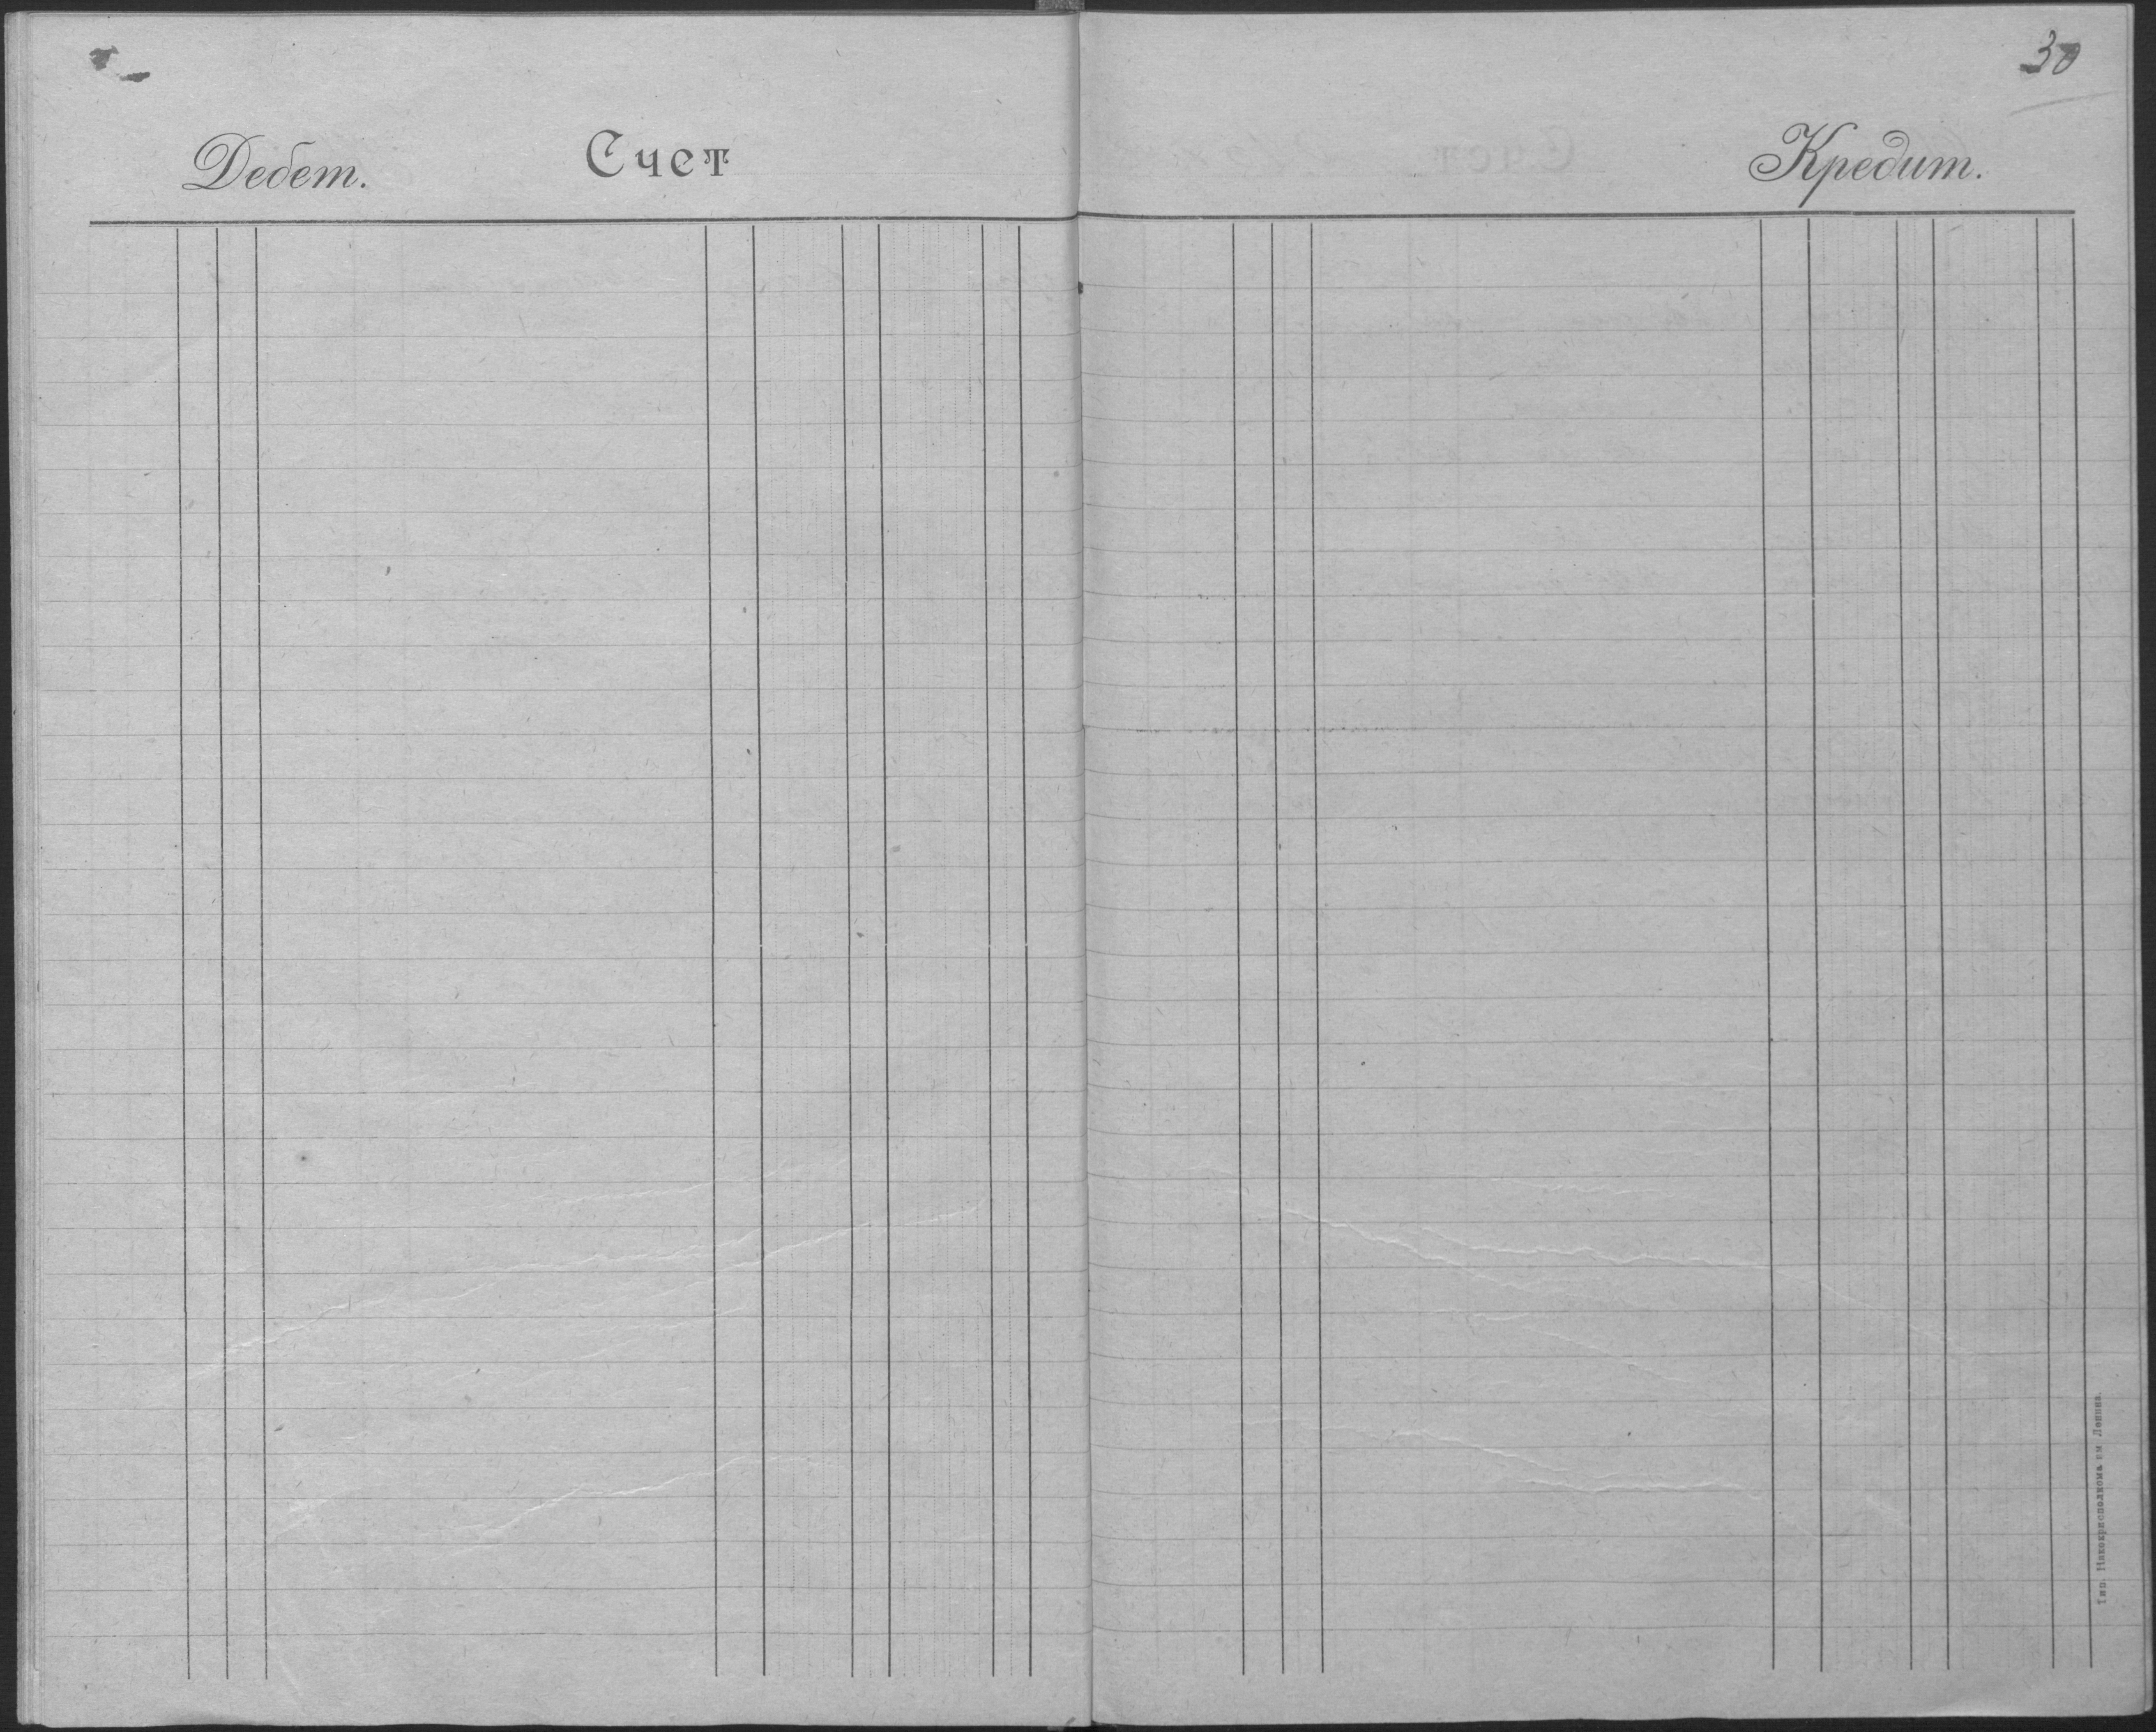 30
Дебет. Счет Кредит.
Тип. Никокрисполкома им. Ленина.